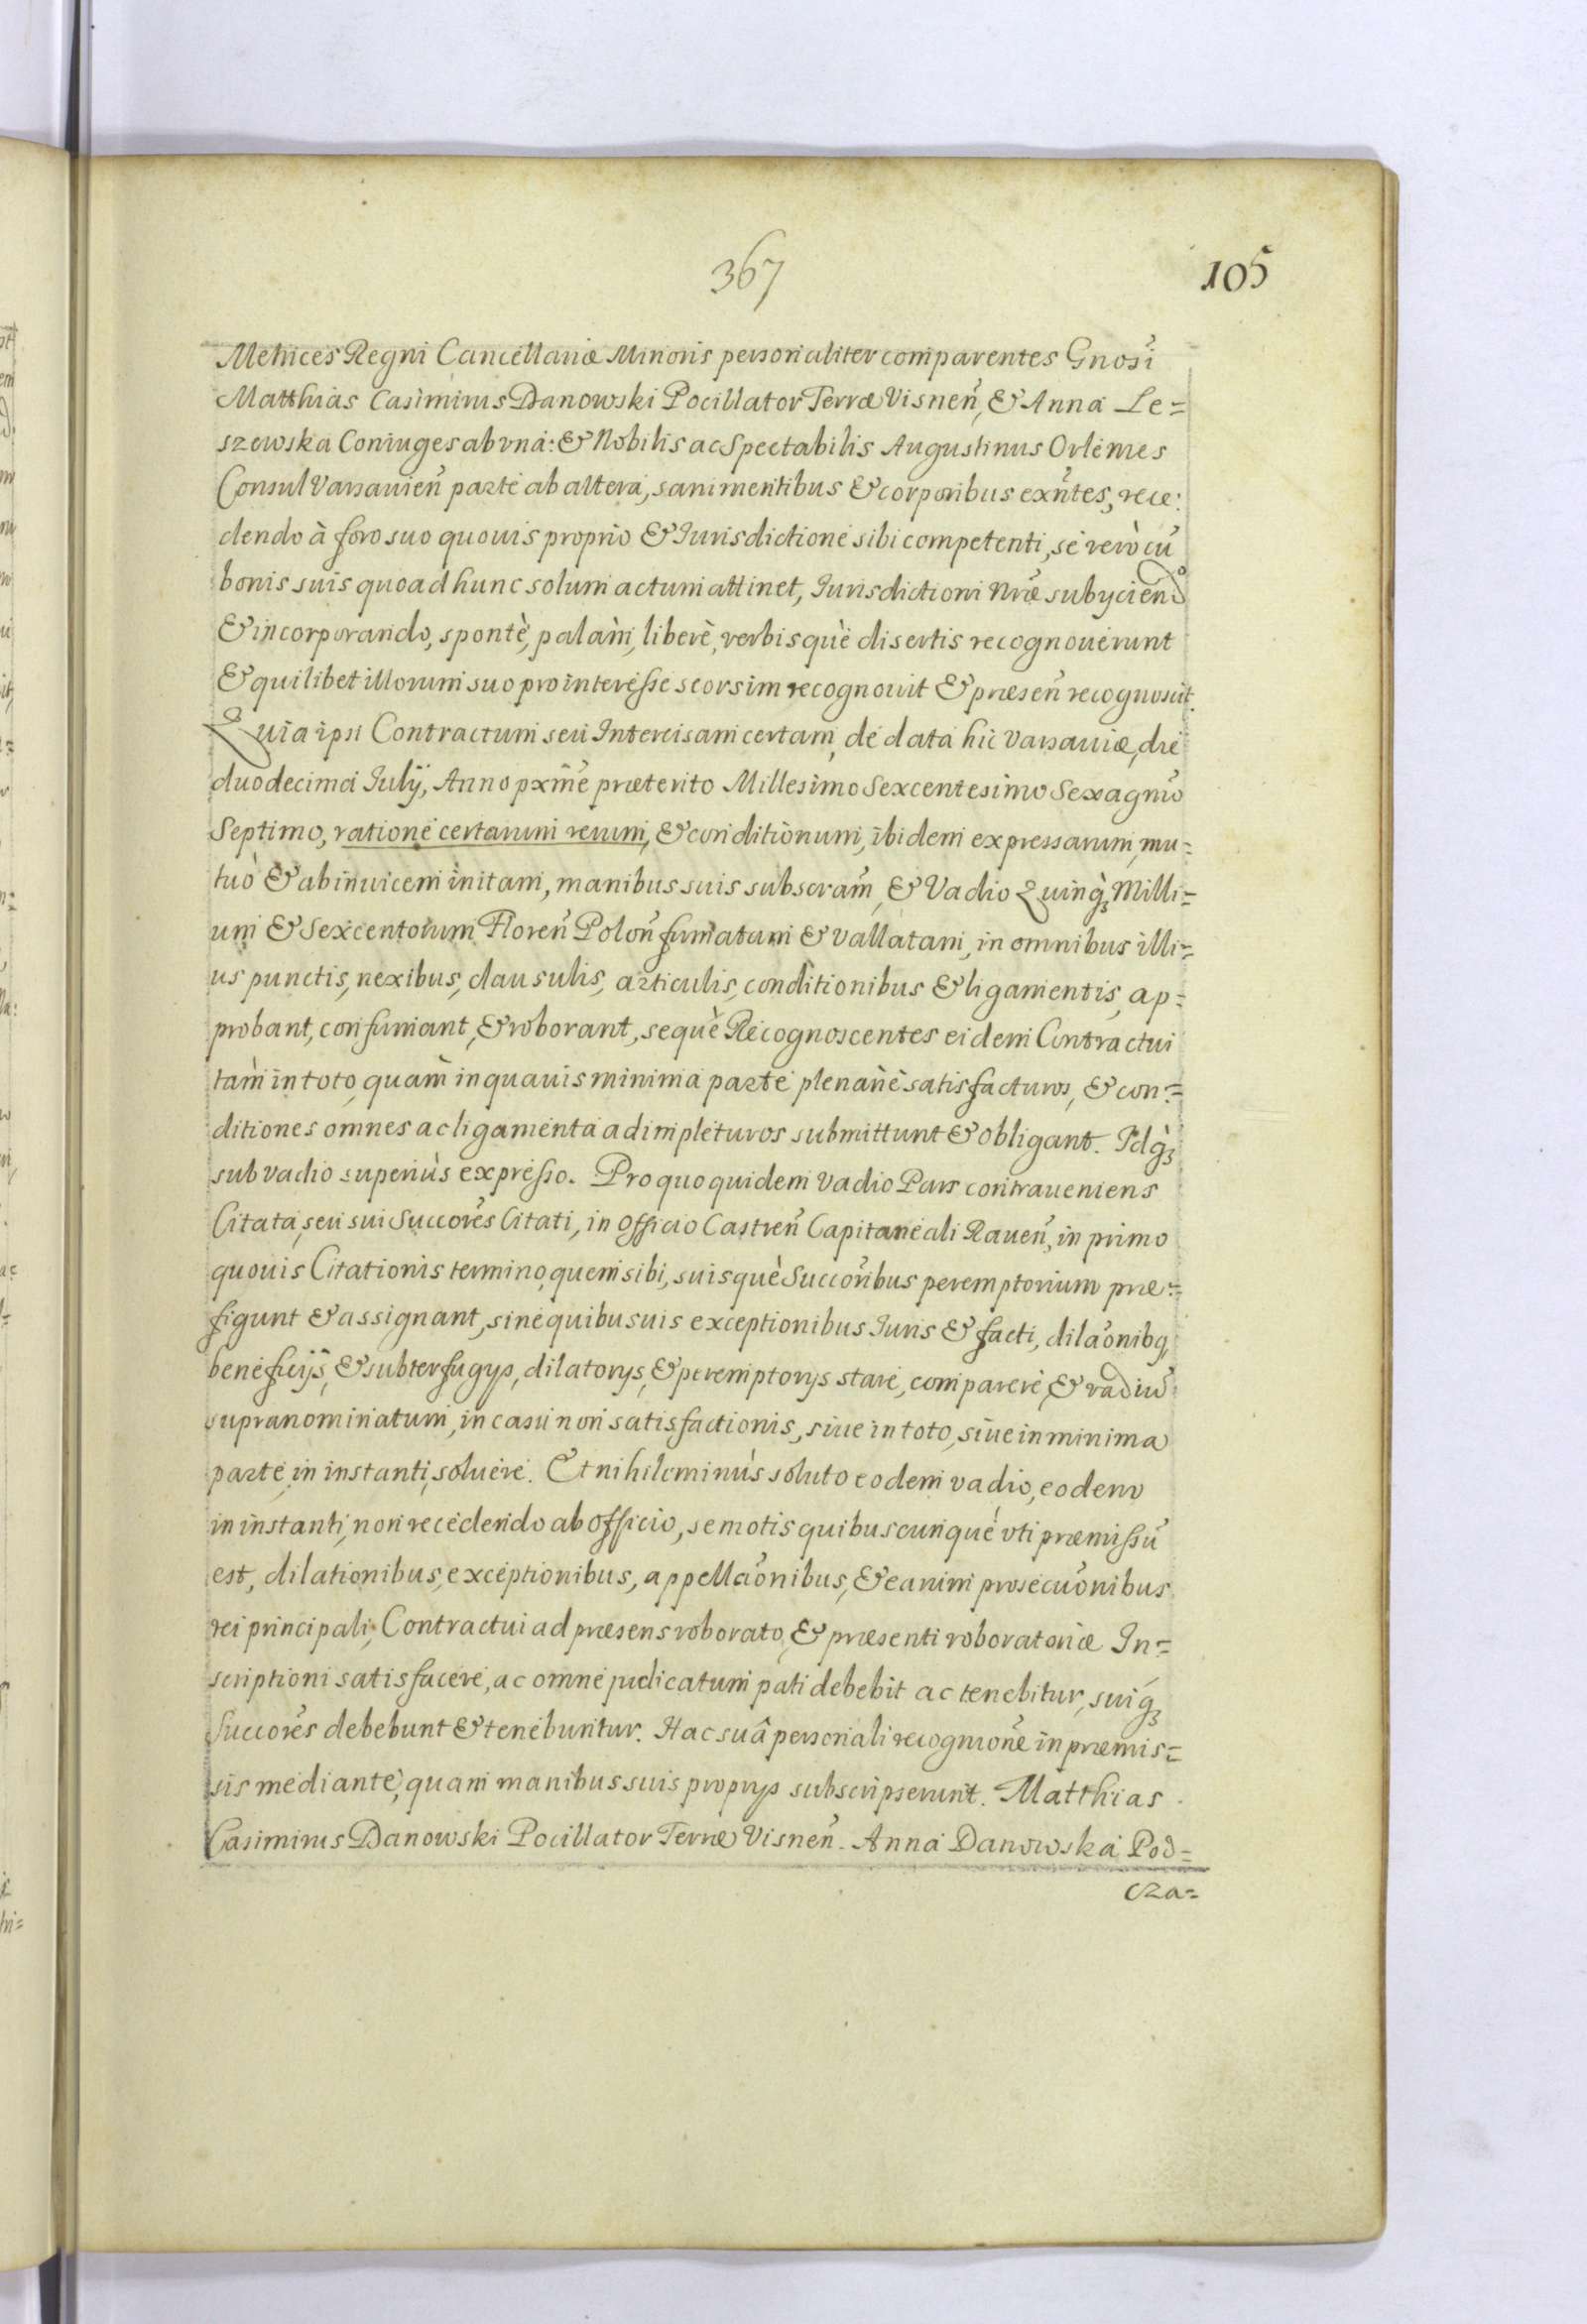 367
105
Metrices Regni Cancellariæ Minoris personaliter comparentes Gnosi
Matthias Casimirus Danowski Pocillator Terræ Visneñ, & Anna Le=
szewska Coniuges ab vna: & Nobilis ac Spectabilis Augustinus Orlemes
Consul Varsavieñ parte ab altera, sani mentibus & corporibus exñtes, rece:
dendo à foro suo quouis proprio & Iurisdictione sibi competenti, se verò cũ
bonis suis quoad hunc solum actum attinet, Iurisdictioni Nræ subyciendo
& incorporando, spontè, palàm, liberè, verbisquè disertis recognouerunt
& quilibet illorum suo pro interesse seorsim recognouit & præseñ recognoscit.
Quia ipsi Contractum seu Intercisam certam, de data hic Varsauiæ, die
duodecima Iulÿ, Anno pxm̃e præterito Millesimo Sexcentesimo Sexagm̃o
Septimo, ratione certarum rerum, & conditionum, ibidem expressarum, mu=
tuò & ab inuicem initam, manibus suis subscram̃, & Vadio Quinq̀ꝫ Milli=
um & Sexcentorum Floreñ Poloñ firmatam & vallatam, in omnibus illi=
us punctis, nexibus, clausulis, articulis, conditionibus & ligamentis, ap=
probant, confirmant, & roborant, sequè Recognoscentes eidem Contractui
tàm in toto, quàm in quauis minima parte plenariè satisfacturos, & con=
ditiones omnes ac ligamenta adimpleturos submittunt & obligant. Idq̀ꝫ
sub vadio superiùs expresso. Pro quo quidem Vadio Pars contraueniens
Citata, seu sui Succores Citati, in Officio Castreñ Capitaneali Raueñ, in primo
quouis Citationis termino, quem sibi, suisquè Succoribus peremptorium præ=
figunt & assignant, sine quibusuis exceptionibus Iuris & facti, dilaõnibq
beneficÿs, & subterfugys, dilatorys, & peremptorys stare, comparere, & vadiũ
supranominatum, in casu non satisfactionis, siue in toto, siue in minima
parte, in instanti, soluere. Et nihilominùs soluto eodem vadio, eodem
in instanti, non recedendo ab Officio, semotis quibuscunque vti præmissũ
est, dilationibus, exceptionibus, appellaõnibus, & earum prosecuõnibus
rei principali, Contractui ad præsens roborato, & præsenti roboratoriæ In=
scriptioni satisfacere, ac omne judicatum pati debebit ac tenebitur, suiq́ꝫ
Succores debebunt & tenebuntur. Hac suâ personali recognione in præmis=
sis mediante, quam manibus suis proprys subscripserunt. Matthias
Casimirus Danowski Pocillator Terræ Visneñ. Anna Danowska Pod=
cza=